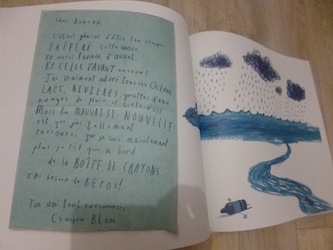 C'était génial d'être ton crayon
PRÉFÉRÉ cette année.
Et aussi l'année d'avant.
ET CELLE D'AVANT encore !
J'ai vraiment adoré tous ces Océans,
LACS, RIVIÈRES, gouttes d'eau,
nuages de pluie et
Mais la MAUVAISE NOUVELLE
est que j'ai tellement
raccourci que je suis maintenant
plus petit que le bord
de la BOÎTE DE CRAYONS.
J'AI BESOIN DE REPOS!
Ton ami tout raccourci,
Crayon Bleu